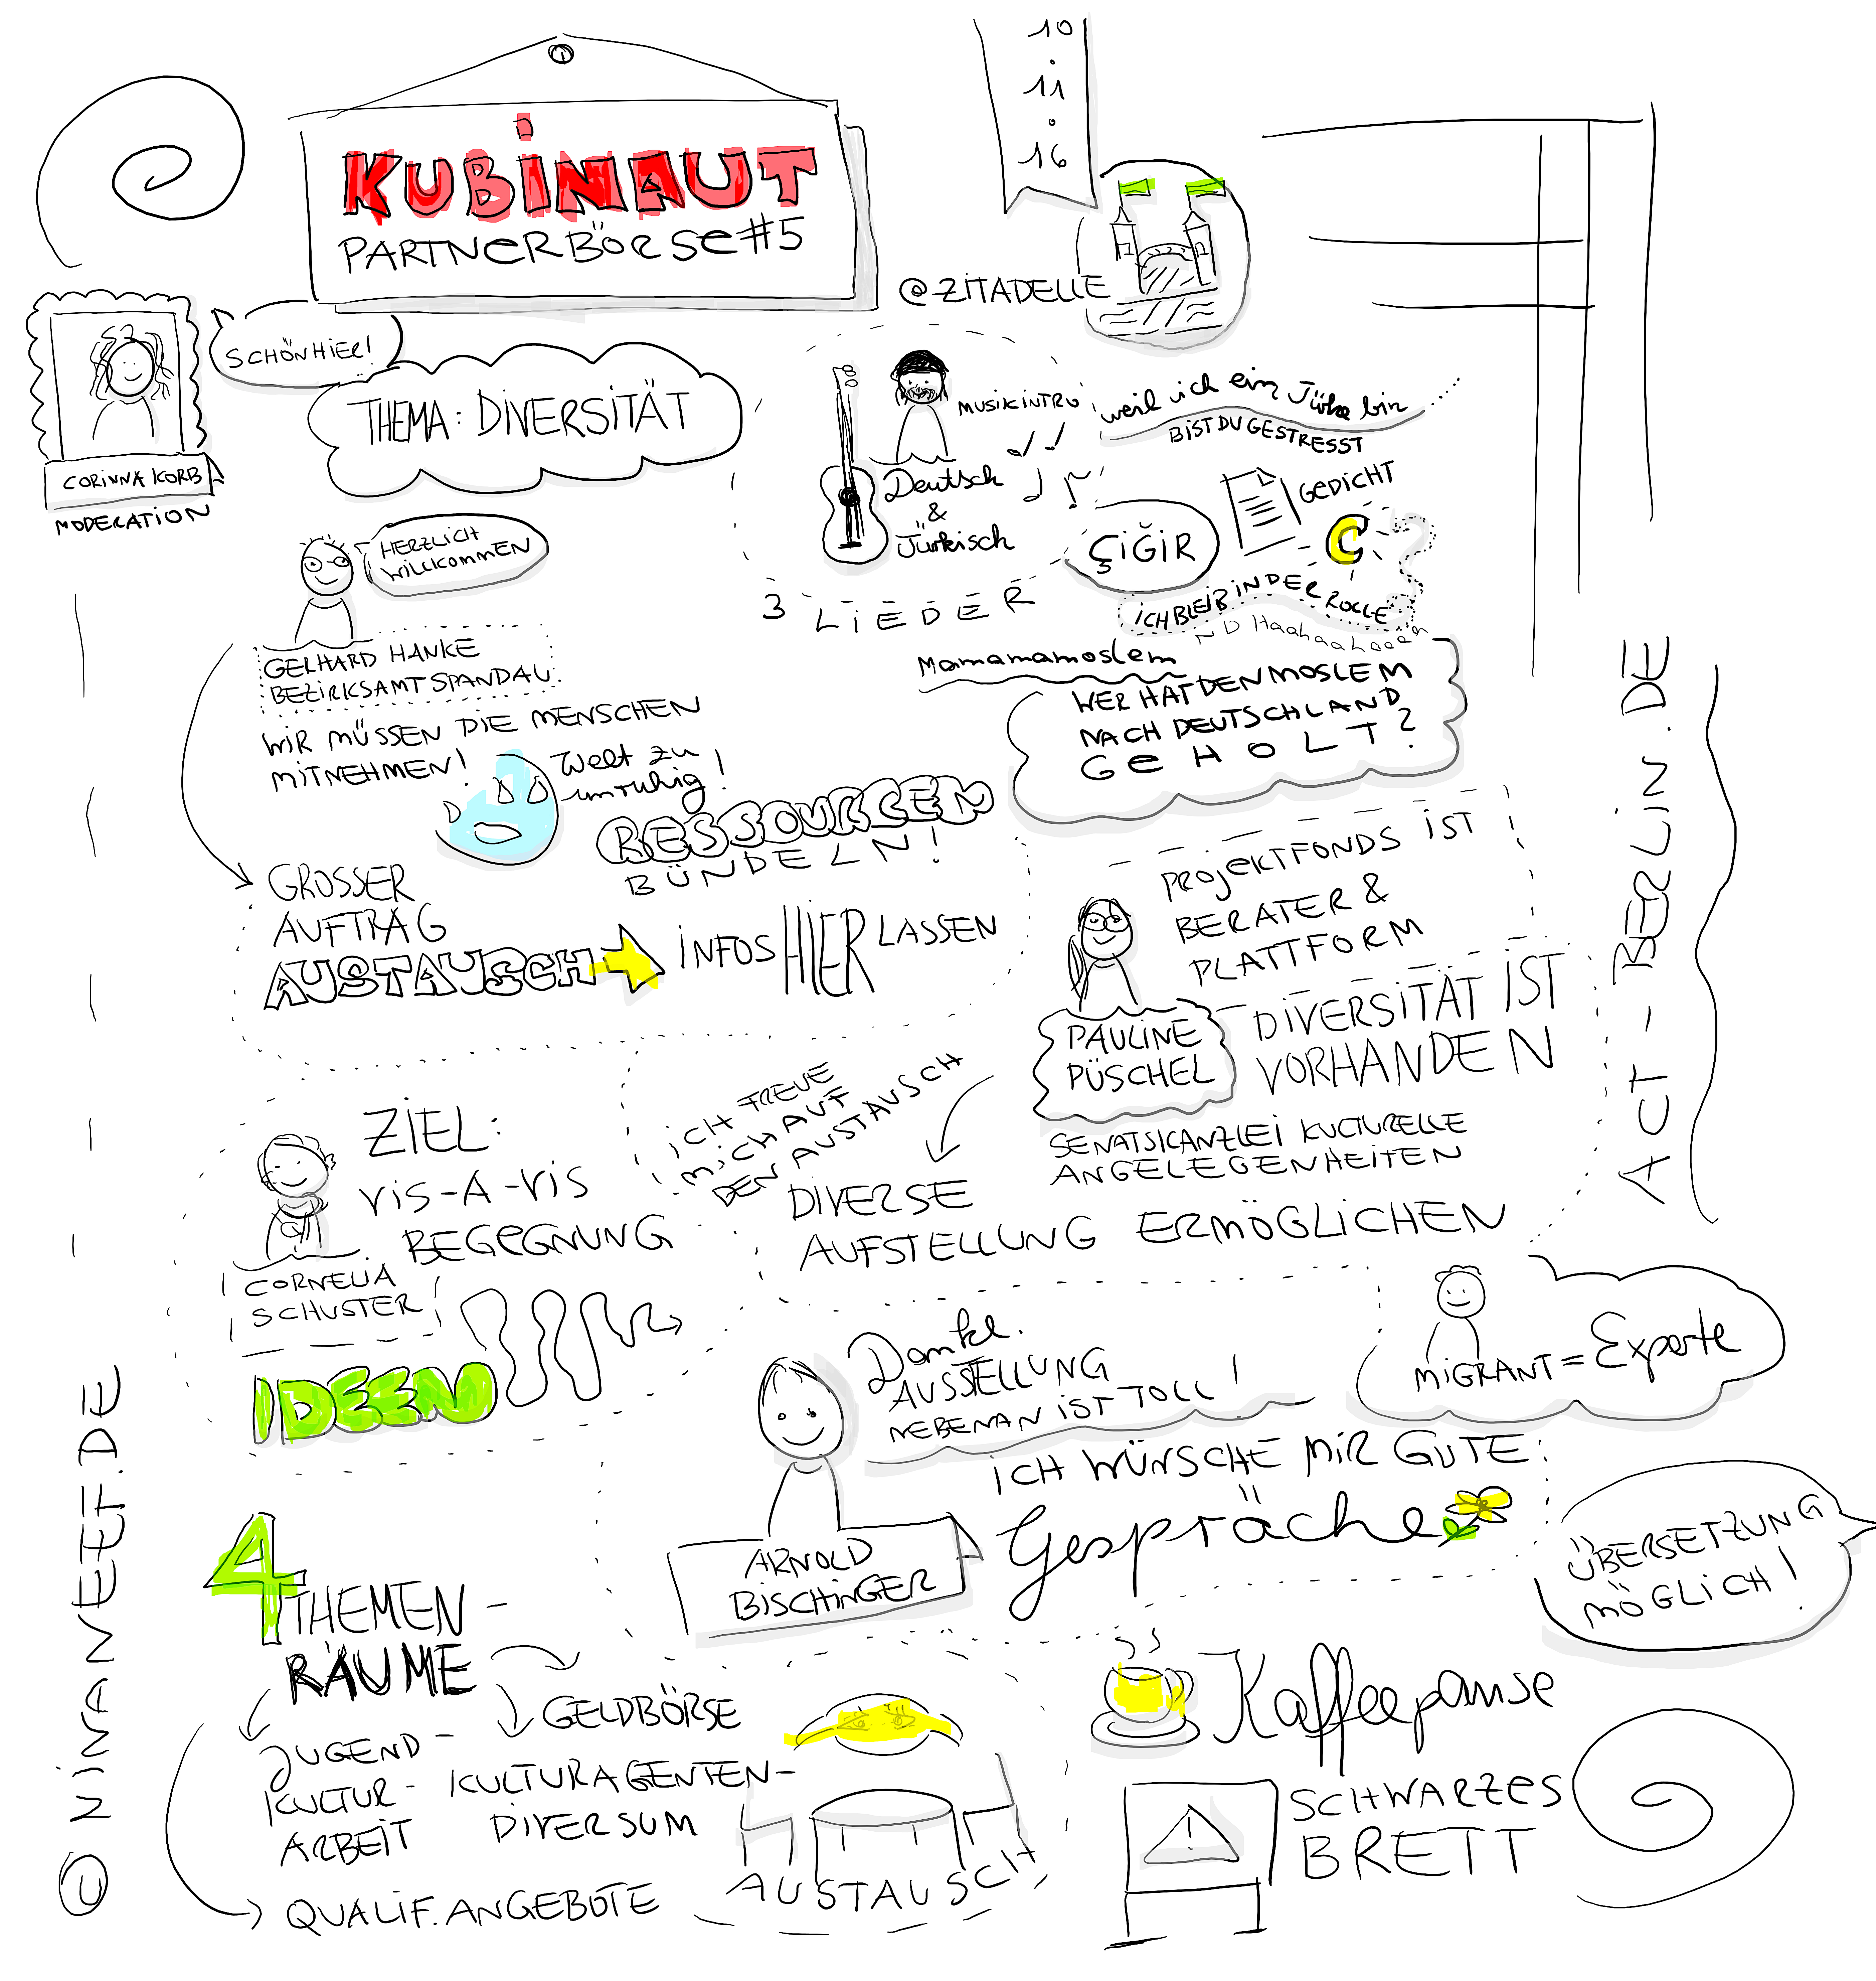 KUBINAUT
PARTNERBÖRSE#5
10
.
11
.
16
@ZITADELLE
SCHÖN HIER!
CORINNA KORB
MODERATION
THEMA: DIVERSITÄT
MUSIKINTRO
Deutsch
&
Türkisch
3 LIEDER
weil ich ein Türke bin ....
BIST DU GESTRESST
GEDICHT
ÇIĞIR
ICH BLEIB IN DER ROLLE
Mamamamoslem
WER HAT DEN MOSLEM
NACH DEUTSCHLAND
GEHOLT?
HERZLICH
WILLKOMMEN
GERHARD HANKE
BEZIRKSAMT SPANDAU
WIR MÜSSEN DIE MENSCHEN
MITNEHMEN!
Welt zu
unruhig!
RESSOURCEN
BÜNDELN!
GROSSER
AUFTRAG
AUSTAUSCH
INFOS HIER LASSEN
PROJEKTFONDS IST
BERATER &
PLATTFORM
DIVERSITÄT IST
VORHANDEN
PAULINE
PÜSCHEL
SENATSKANZLEI KULTURELLE
ANGELEGENHEITEN
ICH FREUE
MICH AUF
DEN AUSTAUSCH
DIVERSE
AUFSTELLUNG ERMÖGLICHEN
ZIEL:
VIS-A-VIS
BEGEGNUNG
CORNELIA
SCHUSTER
IDEEN
Danke.
AUSSTELLUNG
NEBENAN IST TOLL!
MIGRANT = Experte
ICH WÜNSCHE MIR GUTE:
Gespräche
ARNOLD
BISCHINGER
ÜBERSETZUNG
MÖGLICH!
4 THEMEN-
RÄUME
GELDBÖRSE
JUGEND-
KULTUR-
ARBEIT
KULTURAGENTEN-
DIVERSUM
QUALIF. ANGEBOTE
AUSTAUSCH
Kaffeepause
SCHWARZES
BRETT
© NINANVETF.DE
ACT-BERLIN.DE